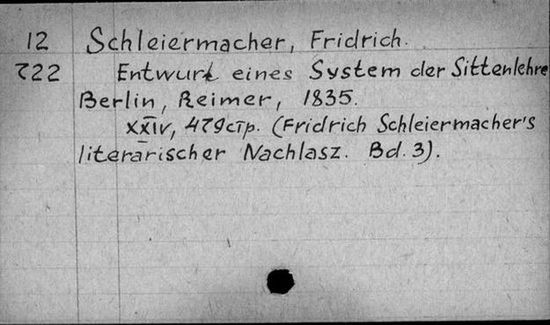 12 Schleiermacher, Fridrich.
722 Entwurf eines System der Sittenlehre
Berlin, Reimer, 1835.
XXIV, 479 стр. (Fridrich Schleiermacher's
literarischer Nachlasz. Bd. 3).